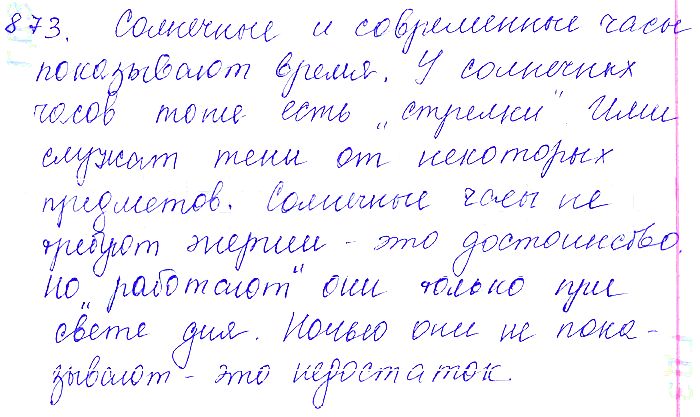 873. Солнечные и современные часы
показывают время. У солнечных
часов тоже есть „стрелки" Ими
служат тени от некоторых
предметов. Солнечные часы не
требуют энергии - это достоинство.
Но „работают" они только при
свете дня. Ночью они не пока-
зывают - это недостаток.